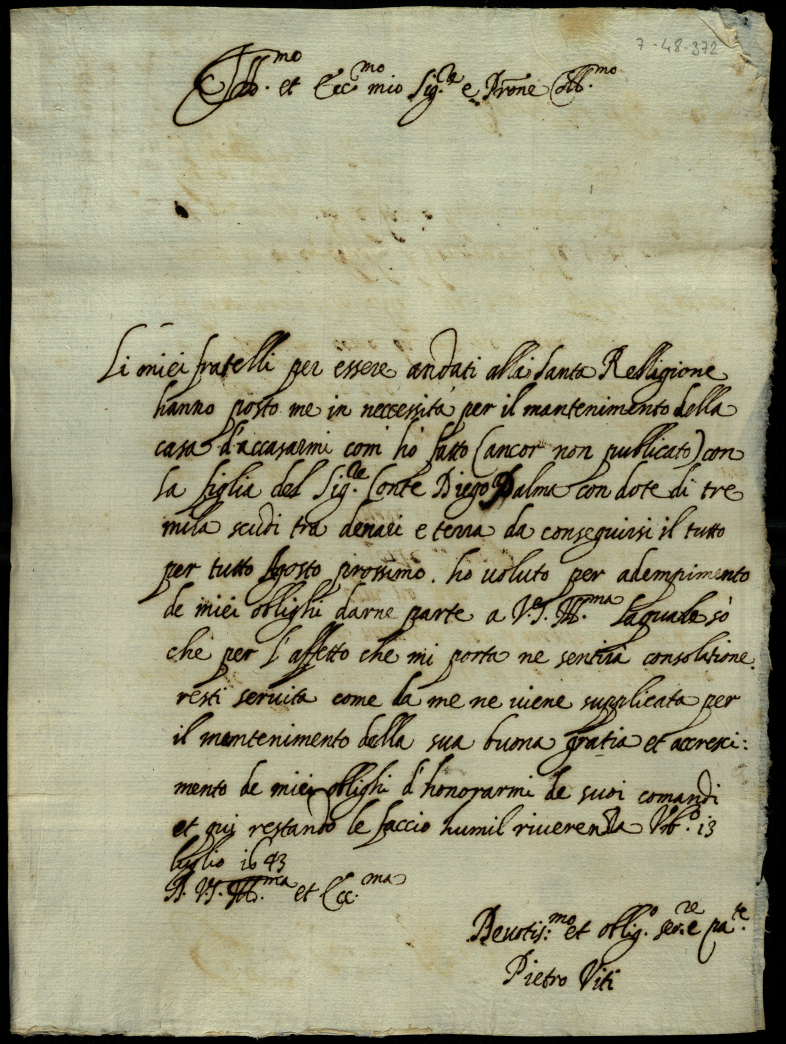 7-48-372
Ill.mo et Ecc.mo mio Sig.re e Prone Coll.mo
Li miei fratelli per essere andati alla Santa Relligione
hanno posto me in neccessità per il mantenimento della
casa d'accasarmi com' hò fatto (ancor non publicato) con
la figlia del Sig.re Conte Diego Palma con dote di tre
mila scudi tra denari e terra da conseguirsi il tutto
per tutto Agosto prossimo. ho voluto per adempimento
de miei oblighi darne parte a V.S. Ill.ma laquale sò
che per l'affetto che mi porta ne sentirà consolatione.
resti servita come la me ne viene supplicata per
il mantenimento della sua buona gratia et accresci:
mento de miei oblighi d'honorarmi de suoi comandi
et qui restando le faccio humil riverenza Urb.o 13
luglio 1643
D. V.S. Ill.ma et Ecc.ma
Devotis:mo et oblig.o ser.re e pa.te
Pietro Viti